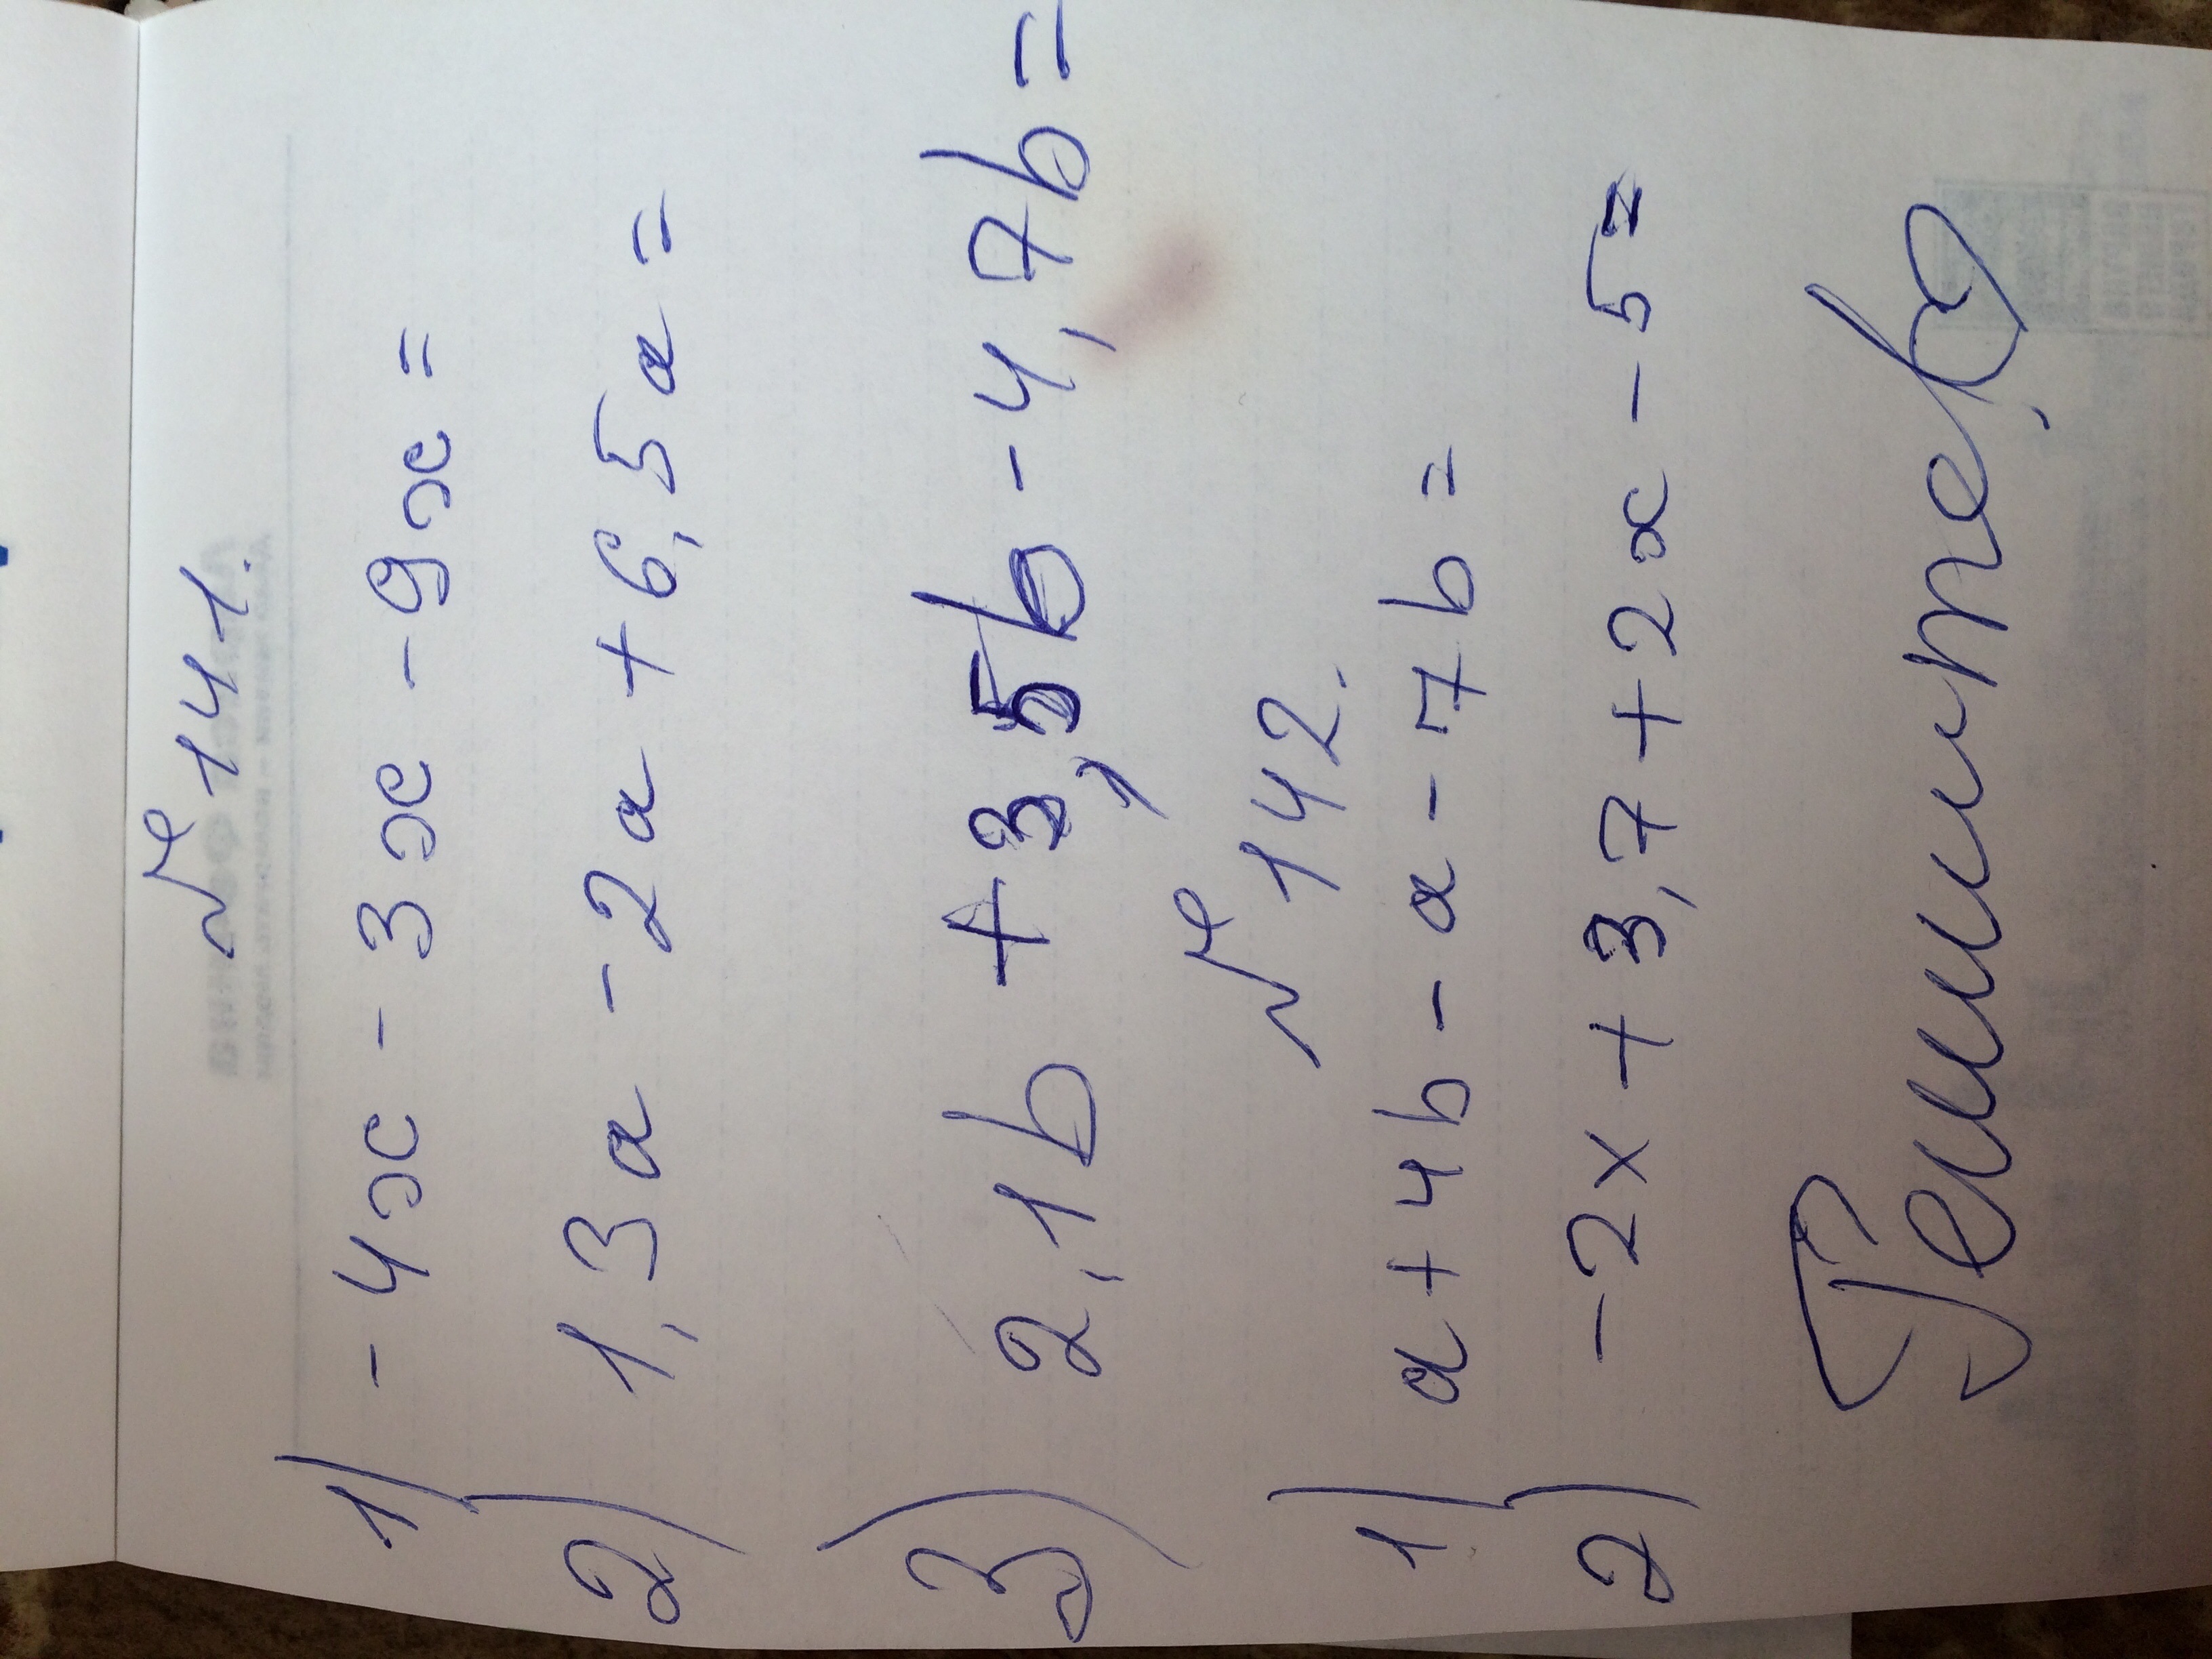 № 141.
1) - 4x - 3x - 9x =
2) 1,3a - 2a + 6,5a =
3) 2,1b + 3,5b - 4,7b =
№ 142.
1) a + 4b - a - 7b =
2) -2x + 3,7 + 2x - 5 =
Решите,